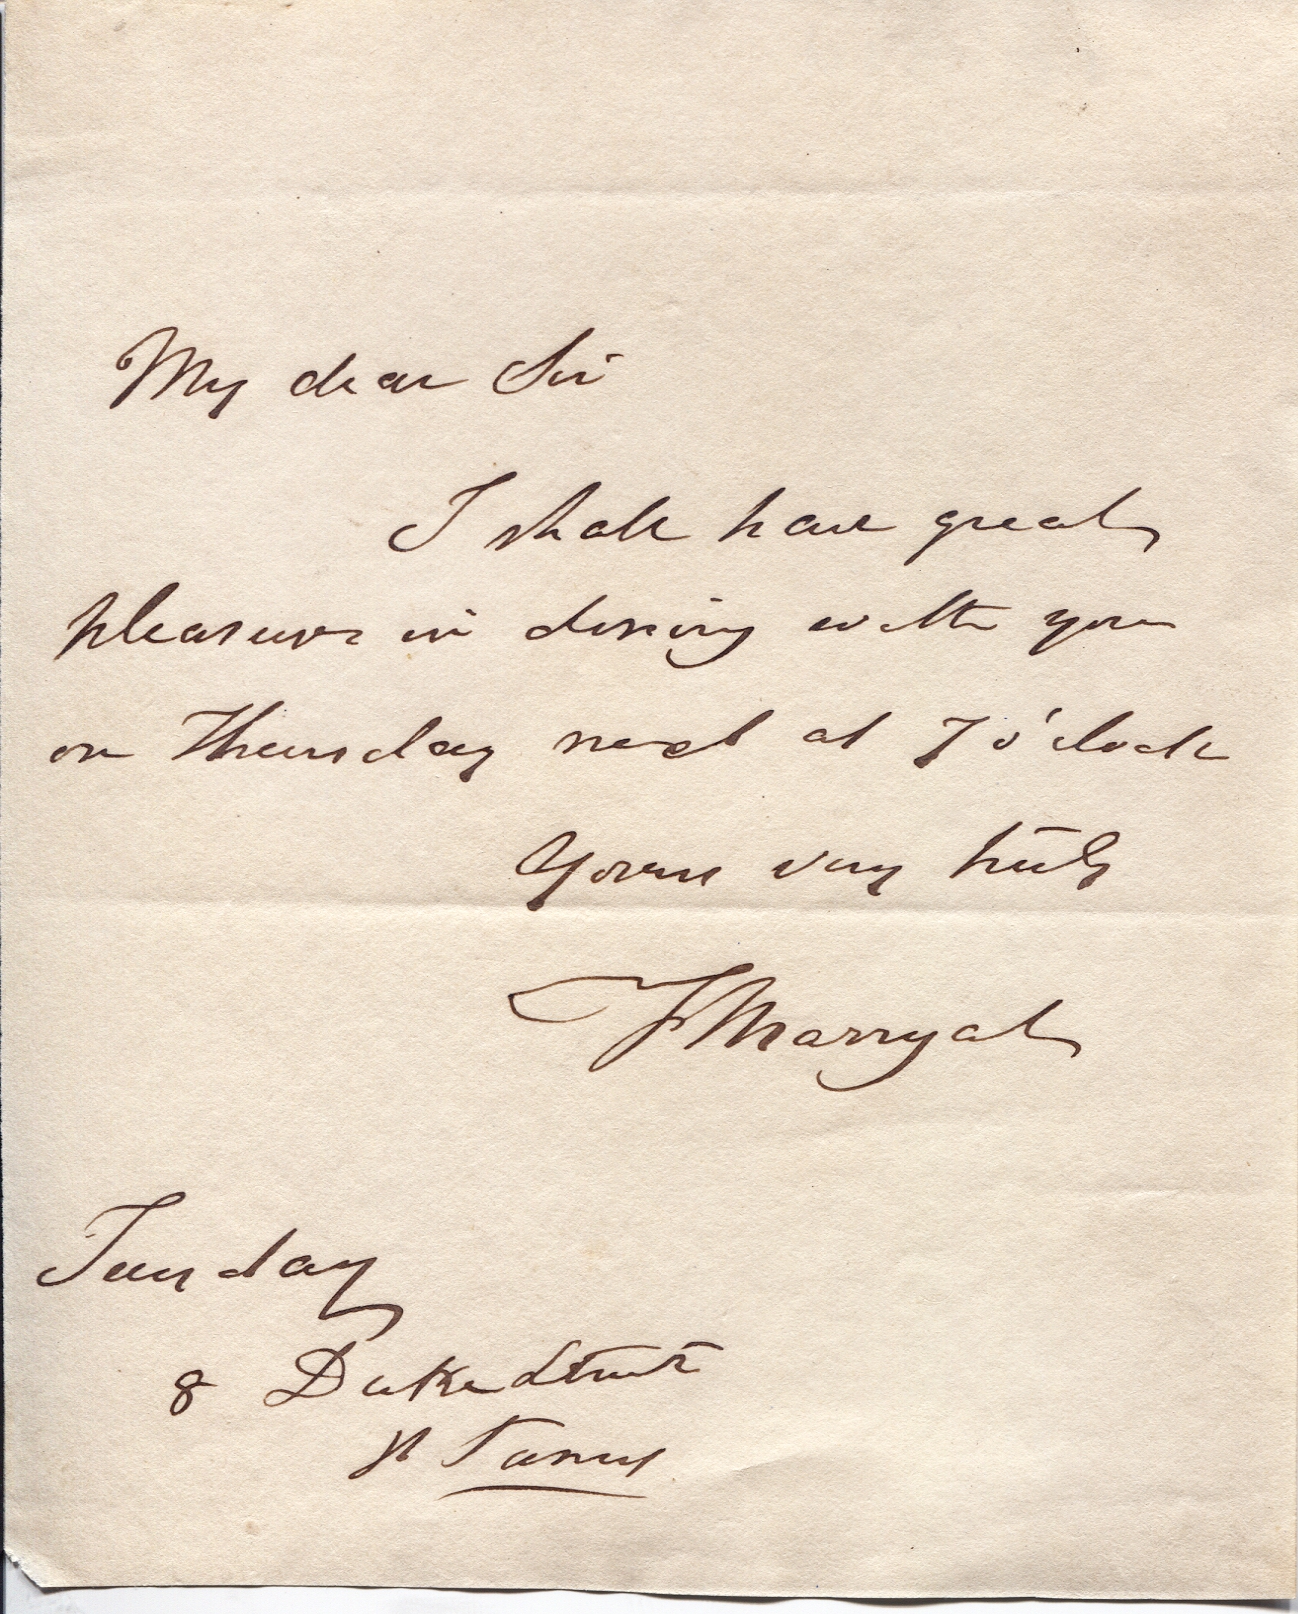 My dear Sir
I shall have great
pleasure in dining with you
on Thursday next at 7 o'clock
Yours very truly
F Marryat
Tuesday
8 Duke Street
St James